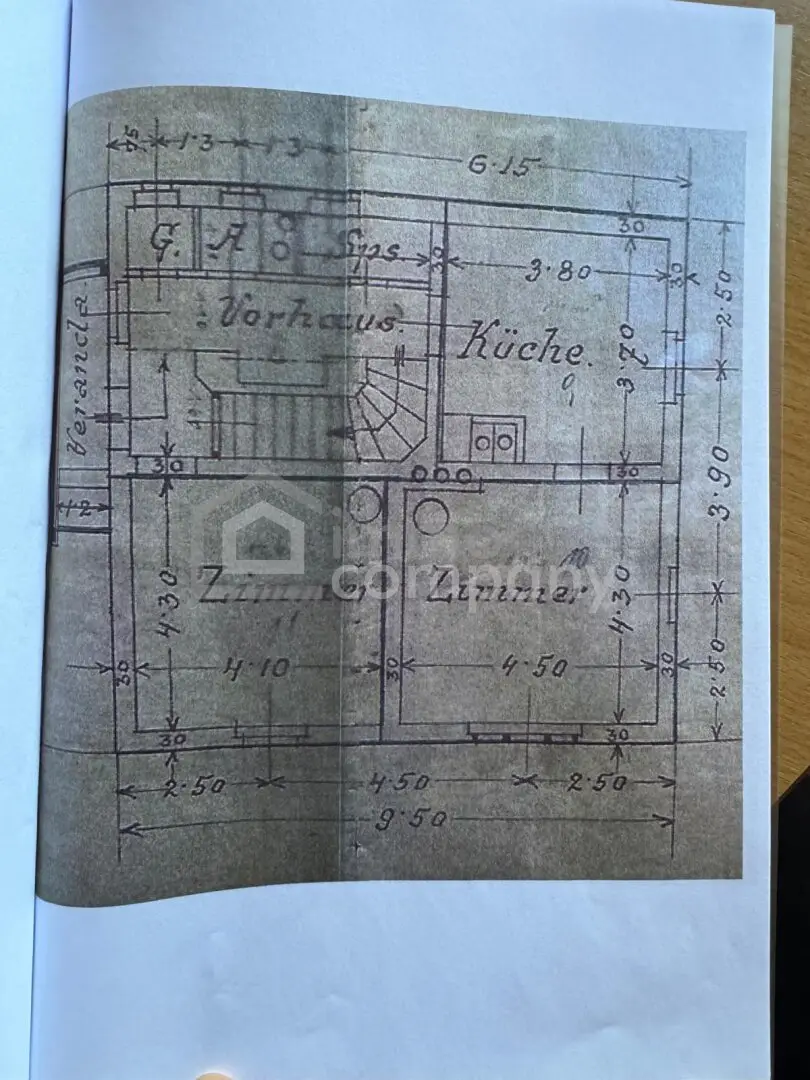 75 1·3 1·3 6·15
30
G. A Sps 30 3·80 30
2·50
Vorhaus.
Küche. 3·70
Veranda
30 30
3·90
12
immo
company
Zimmer Zimmer
4·30 4·30
30 4·10 30 4·50 30
2·50
30 30
2·50 4·50 2·50
9·50